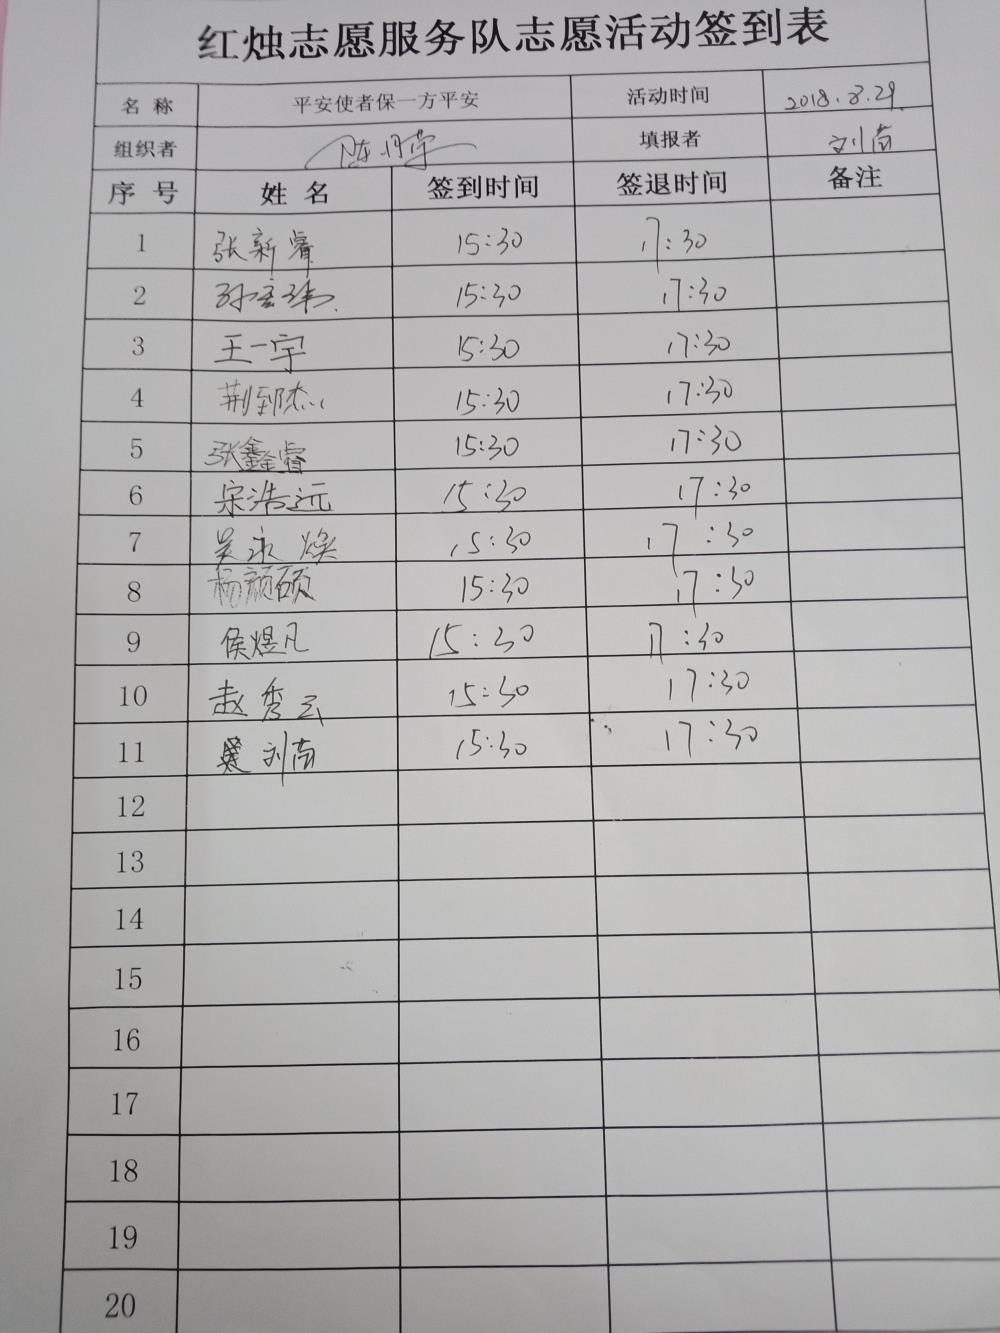 红烛志愿服务队志愿活动签到表
名 称 平安使者保一方平安 活动时间 2018.8.29.
组织者 填报者 刘南
序 号 姓 名 签到时间 签退时间 备注
1 张新睿 15:30 17:30
2 孙 15:30 17:30
3 王一宇 15:30 17:30
4 荆 杰 15:30 17:30
5 张鑫睿 15:30 17:30
6 宋浩远 15:30 17:30
7 吴永焕 15:30 17:30
8 杨颜硕 15:30 17:30
9 侯煜凡 15:30 17:30
10 赵秀云 15:30 17:30
11 刘南 15:30 17:30
12
13
14
15
16
17
18
19
20